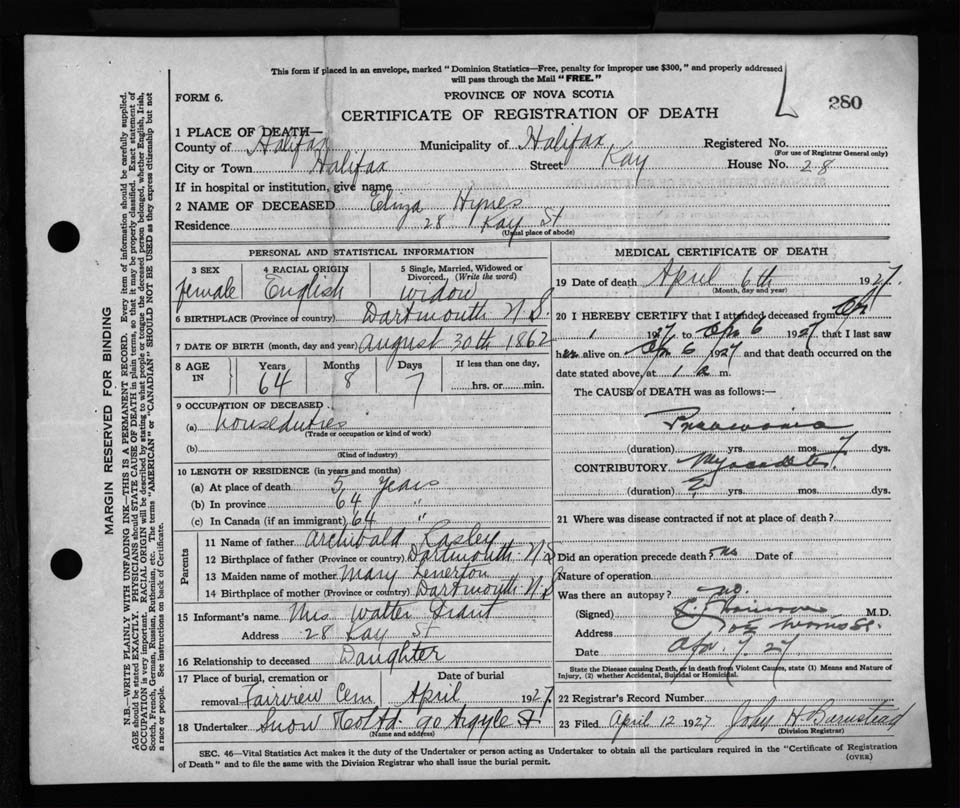 This form if placed in an envelope, marked "Dominion Statistics—Free, penalty for improper use $300," and properly addressed
will pass through the Mail "FREE."
FORM 6.
PROVINCE OF NOVA SCOTIA
280
CERTIFICATE OF REGISTRATION OF DEATH
1 PLACE OF DEATH—
County of Halifax Municipality of Halifax Registered No.
(For use of Registrar General only)
City or Town Halifax Street Kay House No. 28
If in hospital or institution, give name
2 NAME OF DECEASED Eliza Hynes
Residence 28 Kay St
(Usual place of abode)
PERSONAL AND STATISTICAL INFORMATION
3 SEX female
4 RACIAL ORIGIN English
5 Single, Married, Widowed or Divorced, (Write the word) widow
6 BIRTHPLACE (Province or country) Dartmouth N S
7 DATE OF BIRTH (month, day and year) August 30th 1862
8 AGE IN Years 64 Months 8 Days 7 If less than one day, hrs. or min.
9 OCCUPATION OF DECEASED
(a) houseduties
(Trade or occupation or kind of work)
(b)
(Kind of industry)
10 LENGTH OF RESIDENCE (in years and months)
(a) At place of death 5 years
(b) In province 64 "
(c) In Canada (if an immigrant) 64 "
Parents
11 Name of father Archibald
12 Birthplace of father (Province or country) Dartmouth N S
13 Maiden name of mother Mary
14 Birthplace of mother (Province or country) Dartmouth N S
15 Informant's name Mrs Walter Grant
Address 28 Kay St
16 Relationship to deceased Daughter
17 Place of burial, cremation or removal Fairview Cem
Date of burial April 1927
18 Undertaker Snow Co Ltd 90 Argyle St
(Name and address)
MEDICAL CERTIFICATE OF DEATH
19 Date of death April 6th 1927
(Month, day and year)
20 I HEREBY CERTIFY that I attended deceased from Apr
1 1927 to Apr 6 1927 that I last saw
her alive on Apr 6 1927 and that death occurred on the
date stated above, at 1 a m.
The CAUSE of DEATH was as follows:—
Pneumonia
(duration) yrs. mos. 7 dys.
CONTRIBUTORY Myocarditis
(duration) ? yrs. mos. dys.
21 Where was disease contracted if not at place of death?
Did an operation precede death? no Date of
Nature of operation
Was there an autopsy? no.
(Signed) M.D.
Address Morris St.
Date Apr. 7. 27
State the Disease causing Death, or in death from Violent Causes, state (1) Means and Nature of
Injury, (2) whether Accidental, Suicidal or Homicidal.
22 Registrar's Record Number
23 Filed April 12 1927 John H Barnstead
(Division Registrar)
SEC. 46—Vital Statistics Act makes it the duty of the Undertaker or person acting as Undertaker to obtain all the particulars required in the "Certificate of Registration
of Death" and to file the same with the Division Registrar who shall issue the burial permit.
(OVER)
MARGIN RESERVED FOR BINDING
N.B.—WRITE PLAINLY WITH UNFADING INK—THIS IS A PERMANENT RECORD. Every item of information should be carefully supplied.
AGE should be stated EXACTLY. PHYSICIANS should STATE CAUSE OF DEATH in plain terms, so that it may be properly classified. Exact statement of
OCCUPATION is very important. RACIAL ORIGIN will be described by stating to what people or tongue the deceased person belonged, whether English, Irish,
Scotch, French, German, Russian, Ruthenian, etc. The terms "AMERICAN" or "CANADIAN" SHOULD NOT BE USED as they express citizenship but not
a race or people. See instructions on back of Certificate.